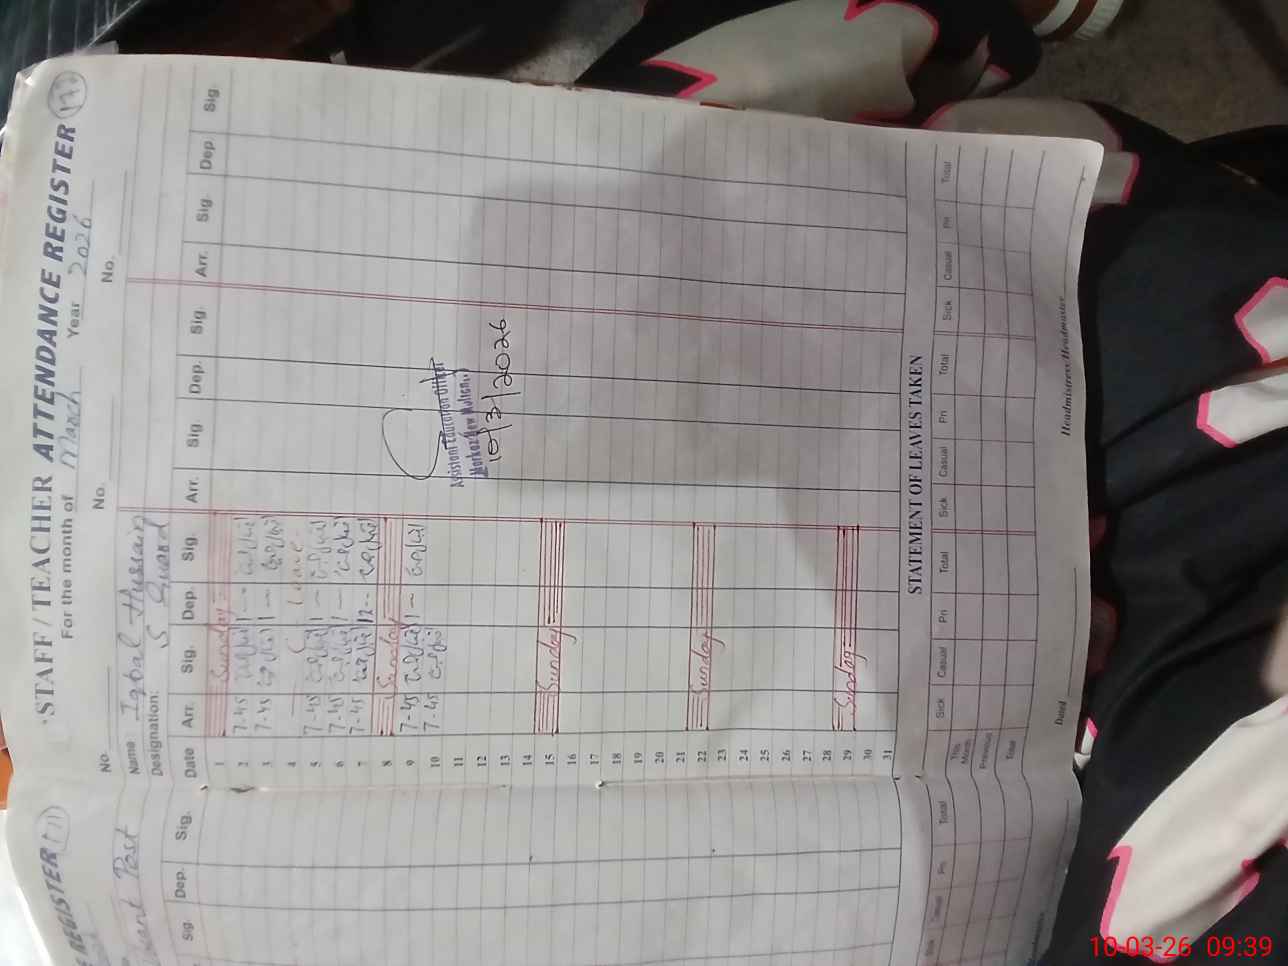 STAFF / TEACHER ATTENDANCE REGISTER 172
For the month of March Year 2026
No. No. No.
Name Iqbal Hussain
Designation: S Guard
Date Arr. Sig. Dep. Sig. Arr. Sig. Dep. Sig. Arr. Sig. Dep Sig.
1 Sunday
2 7-45 1 --
3 7-45 1 --
4 Leave
5 7-45 1 --
6 7-45 1 --
7 7-45 12 --
8 Sunday
9 7-45 1 --
10 7-45
11
12
13
14
15 Sunday
16
17
18
19
20
21
22 Sunday
23
24
25
26
27
28
29 Sunday
30
31
Assistant Education Officer
Markaz New Multan
10/3/2026
STATEMENT OF LEAVES TAKEN
Sick Casual Pri Total Sick Casual Pri Total Sick Casual Pri Total
This Month
Previous
Total
Dated Headmistress/Headmaster
REGISTER 171
Post
Sig. Dep. Sig.
Casual Pri Total
10-03-26 09:39